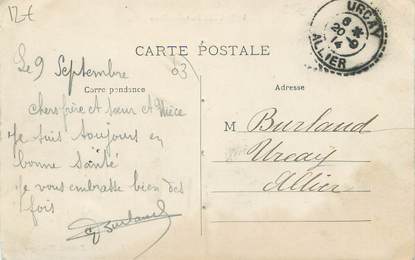 12€
Le 9 Septembre 03
CARTE POSTALE
Correspondance
chers frère et soeur et Nièce
Je suis toujours en
bonne santé
Je vous embrasse bien des
fois
Burlaud
URCAY
6
20 9
14
ALLIER
Adresse
M Burlaud
Urcay
Allier